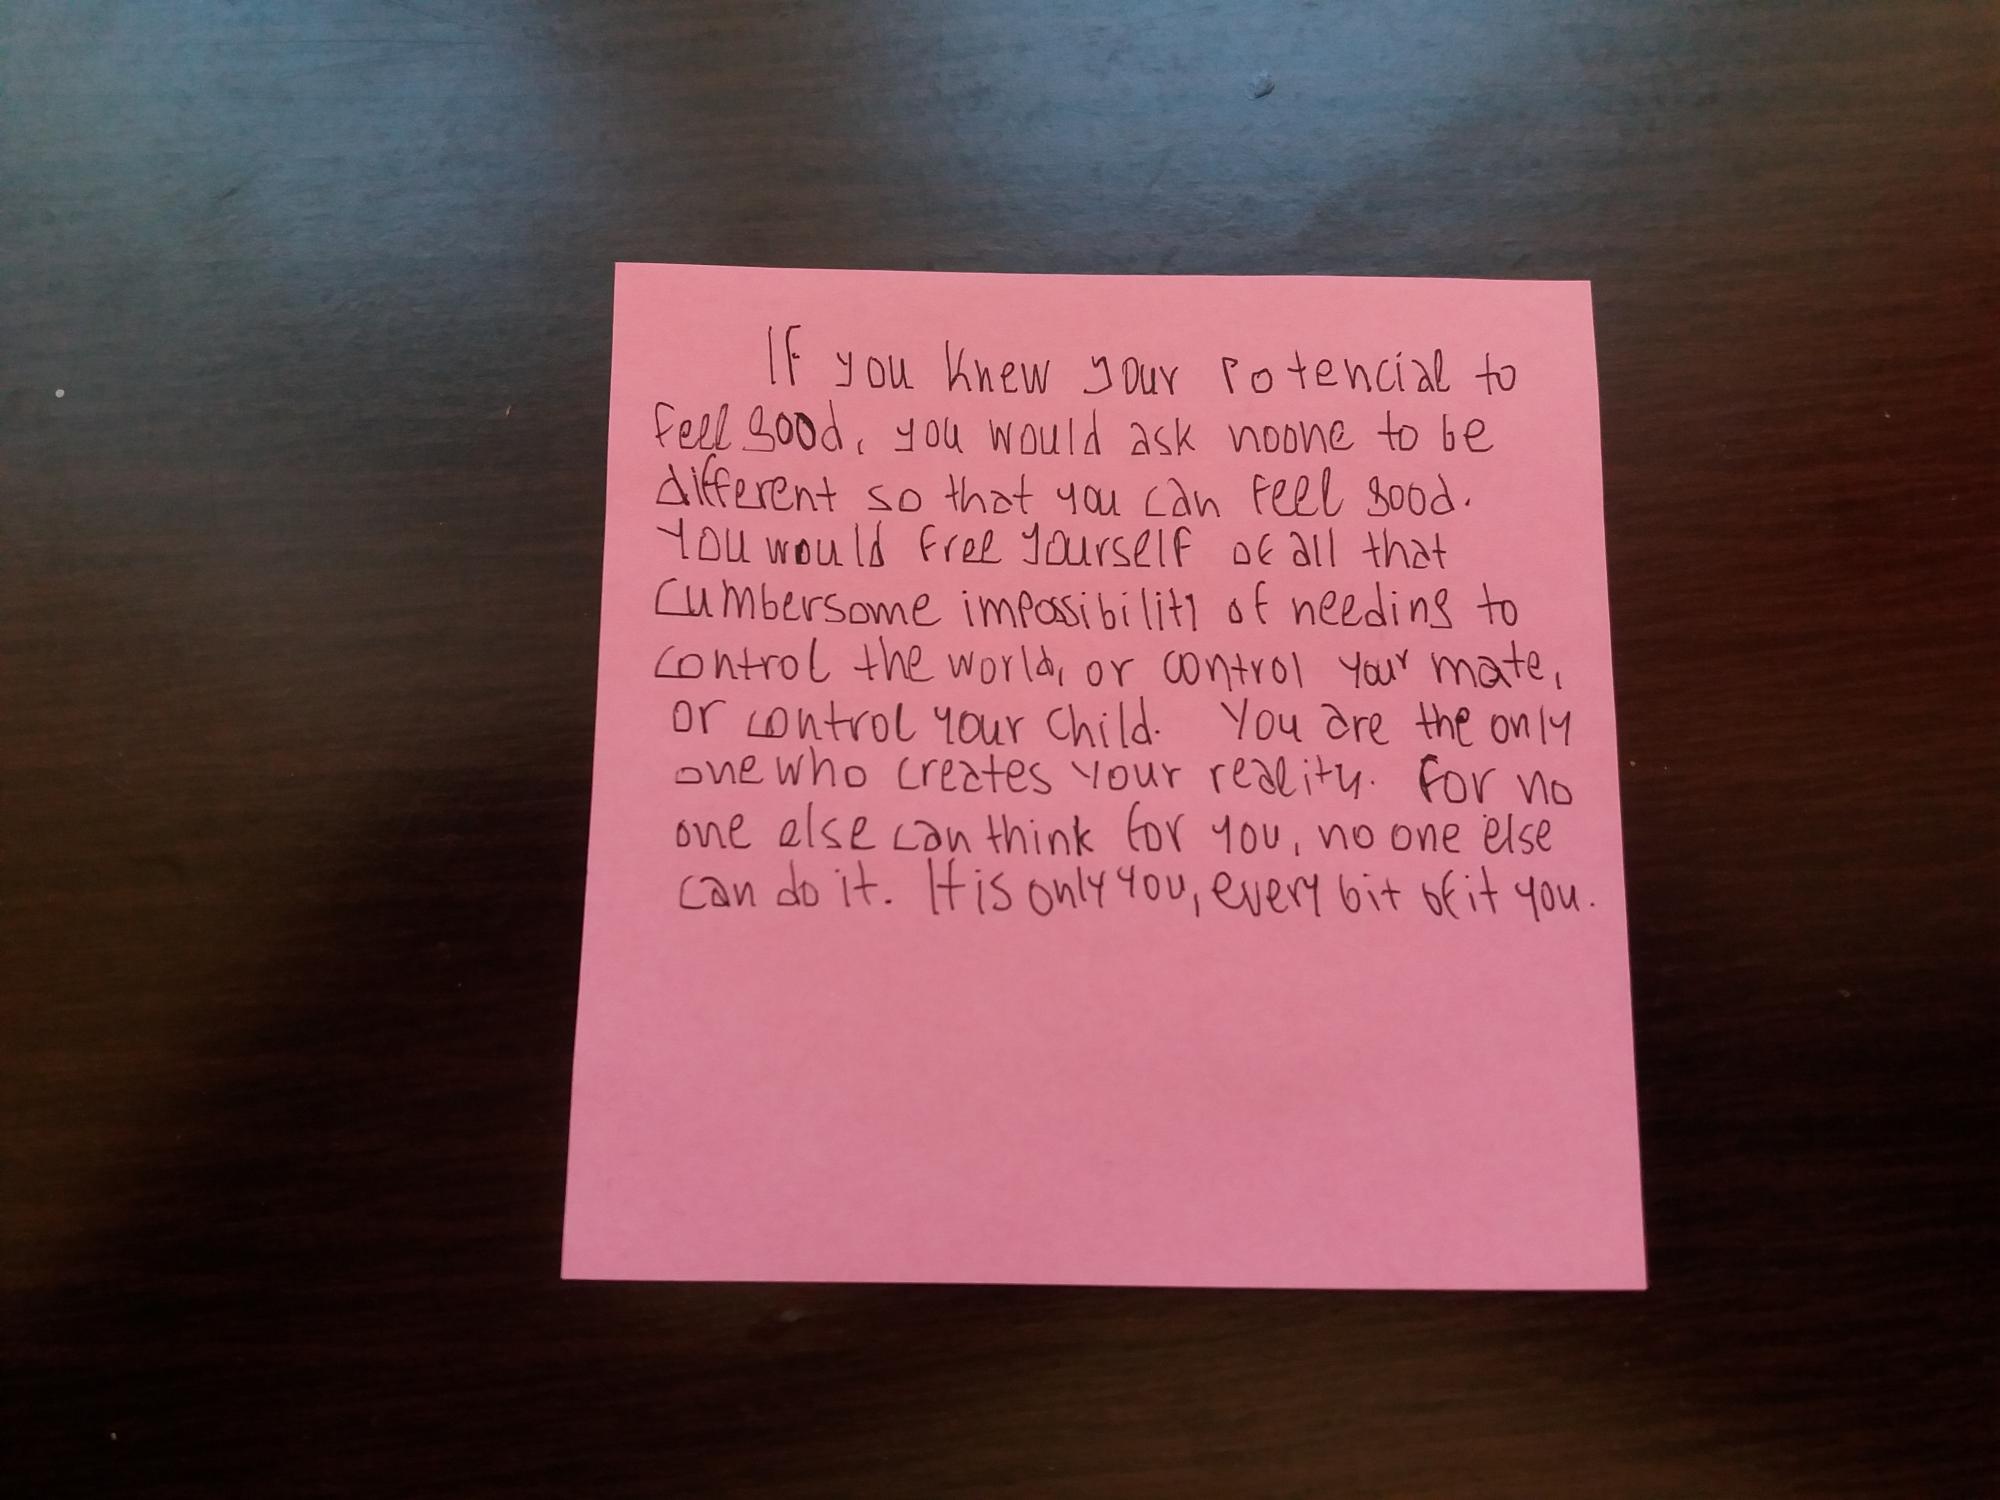 If you knew your potencial to
feel good, you would ask noone to be
different so that you can feel good.
You would free yourself of all that
cumbersome impossibility of needing to
control the world, or control your mate,
or control your child. You are the only
one who creates your reality. For no
one else can think for you, no one else
can do it. It is only you, every bit of it you.